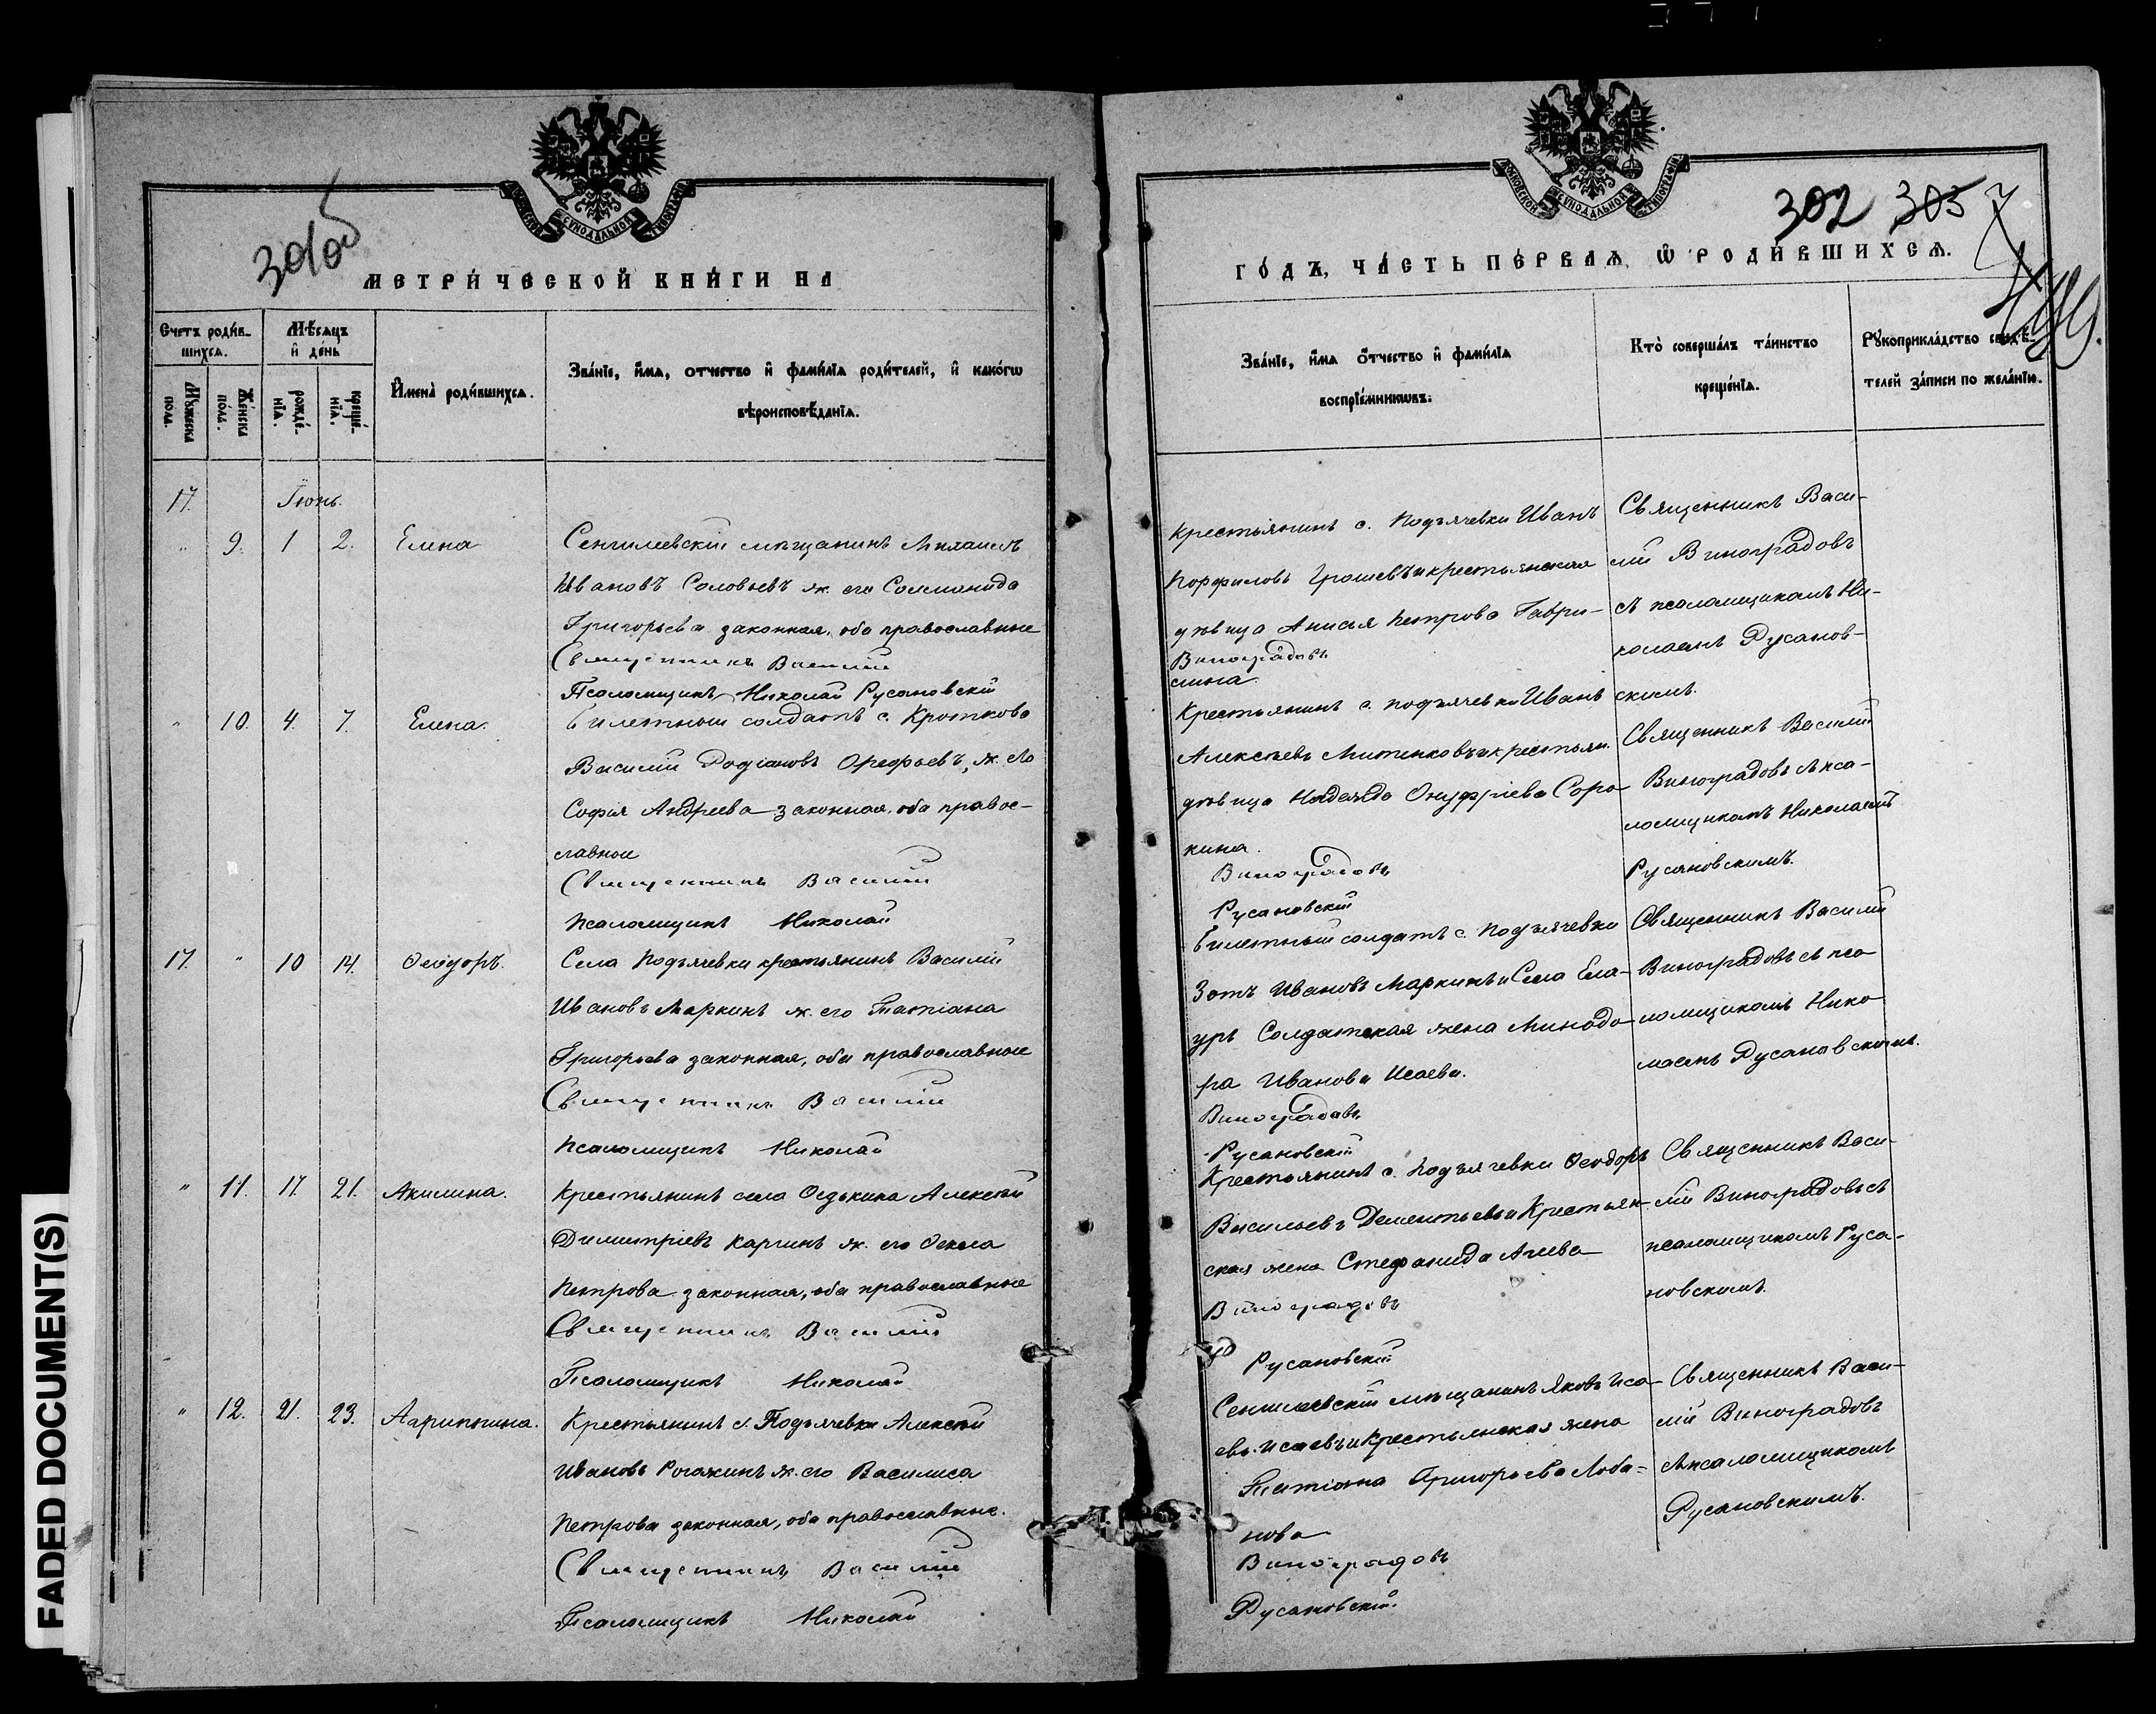 МОСКОВСКОЙ СУНОДАЛЬНОЙ ТИПОГРАФІИ
МЕТРИ́ЧЕСКОЙ КНИ́ГИ НА
Счетъ роди́в-
шихсѧ.
Мѣ́сяцъ
и҆ де́нь
Мꙋ́жеска
пола.
Же́нска
по́ла.
рожде́-
нїѧ.
креще́-
нїѧ.
И҆мена̀ роди́вшихсѧ.
Зва́нїе, и҆́мѧ, ѻтчество и҆ фами́лїѧ роди́телей, и҆ како́гѡ
вѣроисповѣ́данїѧ.
17. Іюнь.
" 9. 1 2. Елена
Сенгилеевскій мѣщанинъ Михаилъ
Ивановъ Соловьевъ ж. его Соломонида
Григорьева законная, оба православные
Священникъ Василій
Псаломщикъ Николай Русановскій
" 10. 4. 7. Елена.
Билетный солдатъ с. Кроткова
Василій Родіоновъ Орефьевъ, ж. его
Софья Андреева законная, оба правос-
славные
Священникъ Василій
Псаломщикъ Николай
17. " 10 14. Ѳеодоръ.
Села Подъячевки крестьянинъ Василій
Ивановъ Маркинъ ж. его Татіана
Григорьева законная, оба православные
Священникъ Василій
Псаломщикъ Николай
" 11. 17. 21. Акилина.
Крестьянинъ села Ѳедькина Алексѣй
Димитріевъ Каргинъ ж. его Ѳекла
Петрова законная, оба православные
Священникъ Василій
Псаломщикъ Николай
" 12. 21. 23. Агриппина.
Крестьянинъ с. Подъячевки Алексѣй
Ивановъ Рогожинъ ж. его Василиса
Петрова законная, оба православные.
Священникъ Василій
Псаломщикъ Николай
МОСКОВСКОЙ СУНОДАЛЬНОЙ ТИПОГРАФІИ
302 305
ГО́ДЪ, ЧА́СТЬ ПЕ́РВАѦ, Ѡ҆ РОДИ́ВШИХСѦ.
Зва́нїе, и҆́мѧ ѻ҆́тчество и҆ фами́лїѧ
воспрїе́мникѡвъ.
Кто̀ соверша́лъ та́инство
креще́нїѧ.
Рꙋкоприкла́дство свидѣ́-
телей за́писи по жела́нїю.
Крестьянинъ с. Подъячевки Иванъ
Порфиловъ Грошевъ и крестьянская
дѣвица Анисья Петрова Гаври-
Виноградовъ
лина.
Священникъ Васи-
лій Виноградовъ
съ псаломщикомъ Ни-
колаемъ Русанов-
скимъ.
Крестьянинъ с. Подъячевки Иванъ
Алексѣевъ Митенковъ и крестьян.
дѣвица Надежда Онуфріева Соро-
кина.
Виноградовъ
Русановскій
Священникъ Василій
Виноградовъ съ пса-
ломщикомъ Николаемъ
Русановскимъ.
Билетный солдатъ с. Подъячевки
Зотъ Ивановъ Маркинъ и Села Ела-
уръ Солдатская жена Минодо-
ра Иванова Исаева.
Виноградовъ
Русановскій
Священникъ Василій
Виноградовъ съ пса
ломщикомъ Нико
лаемъ Русановскимъ.
Крестьянинъ с. Подъячевки Ѳеодоръ
Васильевъ Дементьевъ и Крестьян-
ская жена Стефанида Агеева
Виноградовъ
Русановскій
Священникъ Васи-
лій Виноградовъ съ
псаломщикомъ Руса-
новскимъ.
Сенгилеевскій мѣщанинъ Яковъ Иса-
евъ Исаевъ и Крестьянская жена
Татіана Григорьева Лоба-
нова
Виноградовъ
Русановскій.
Священникъ Васи-
лій Виноградовъ
съ псаломщикомъ
Русановскимъ.
FADED DOCUMENT(S)